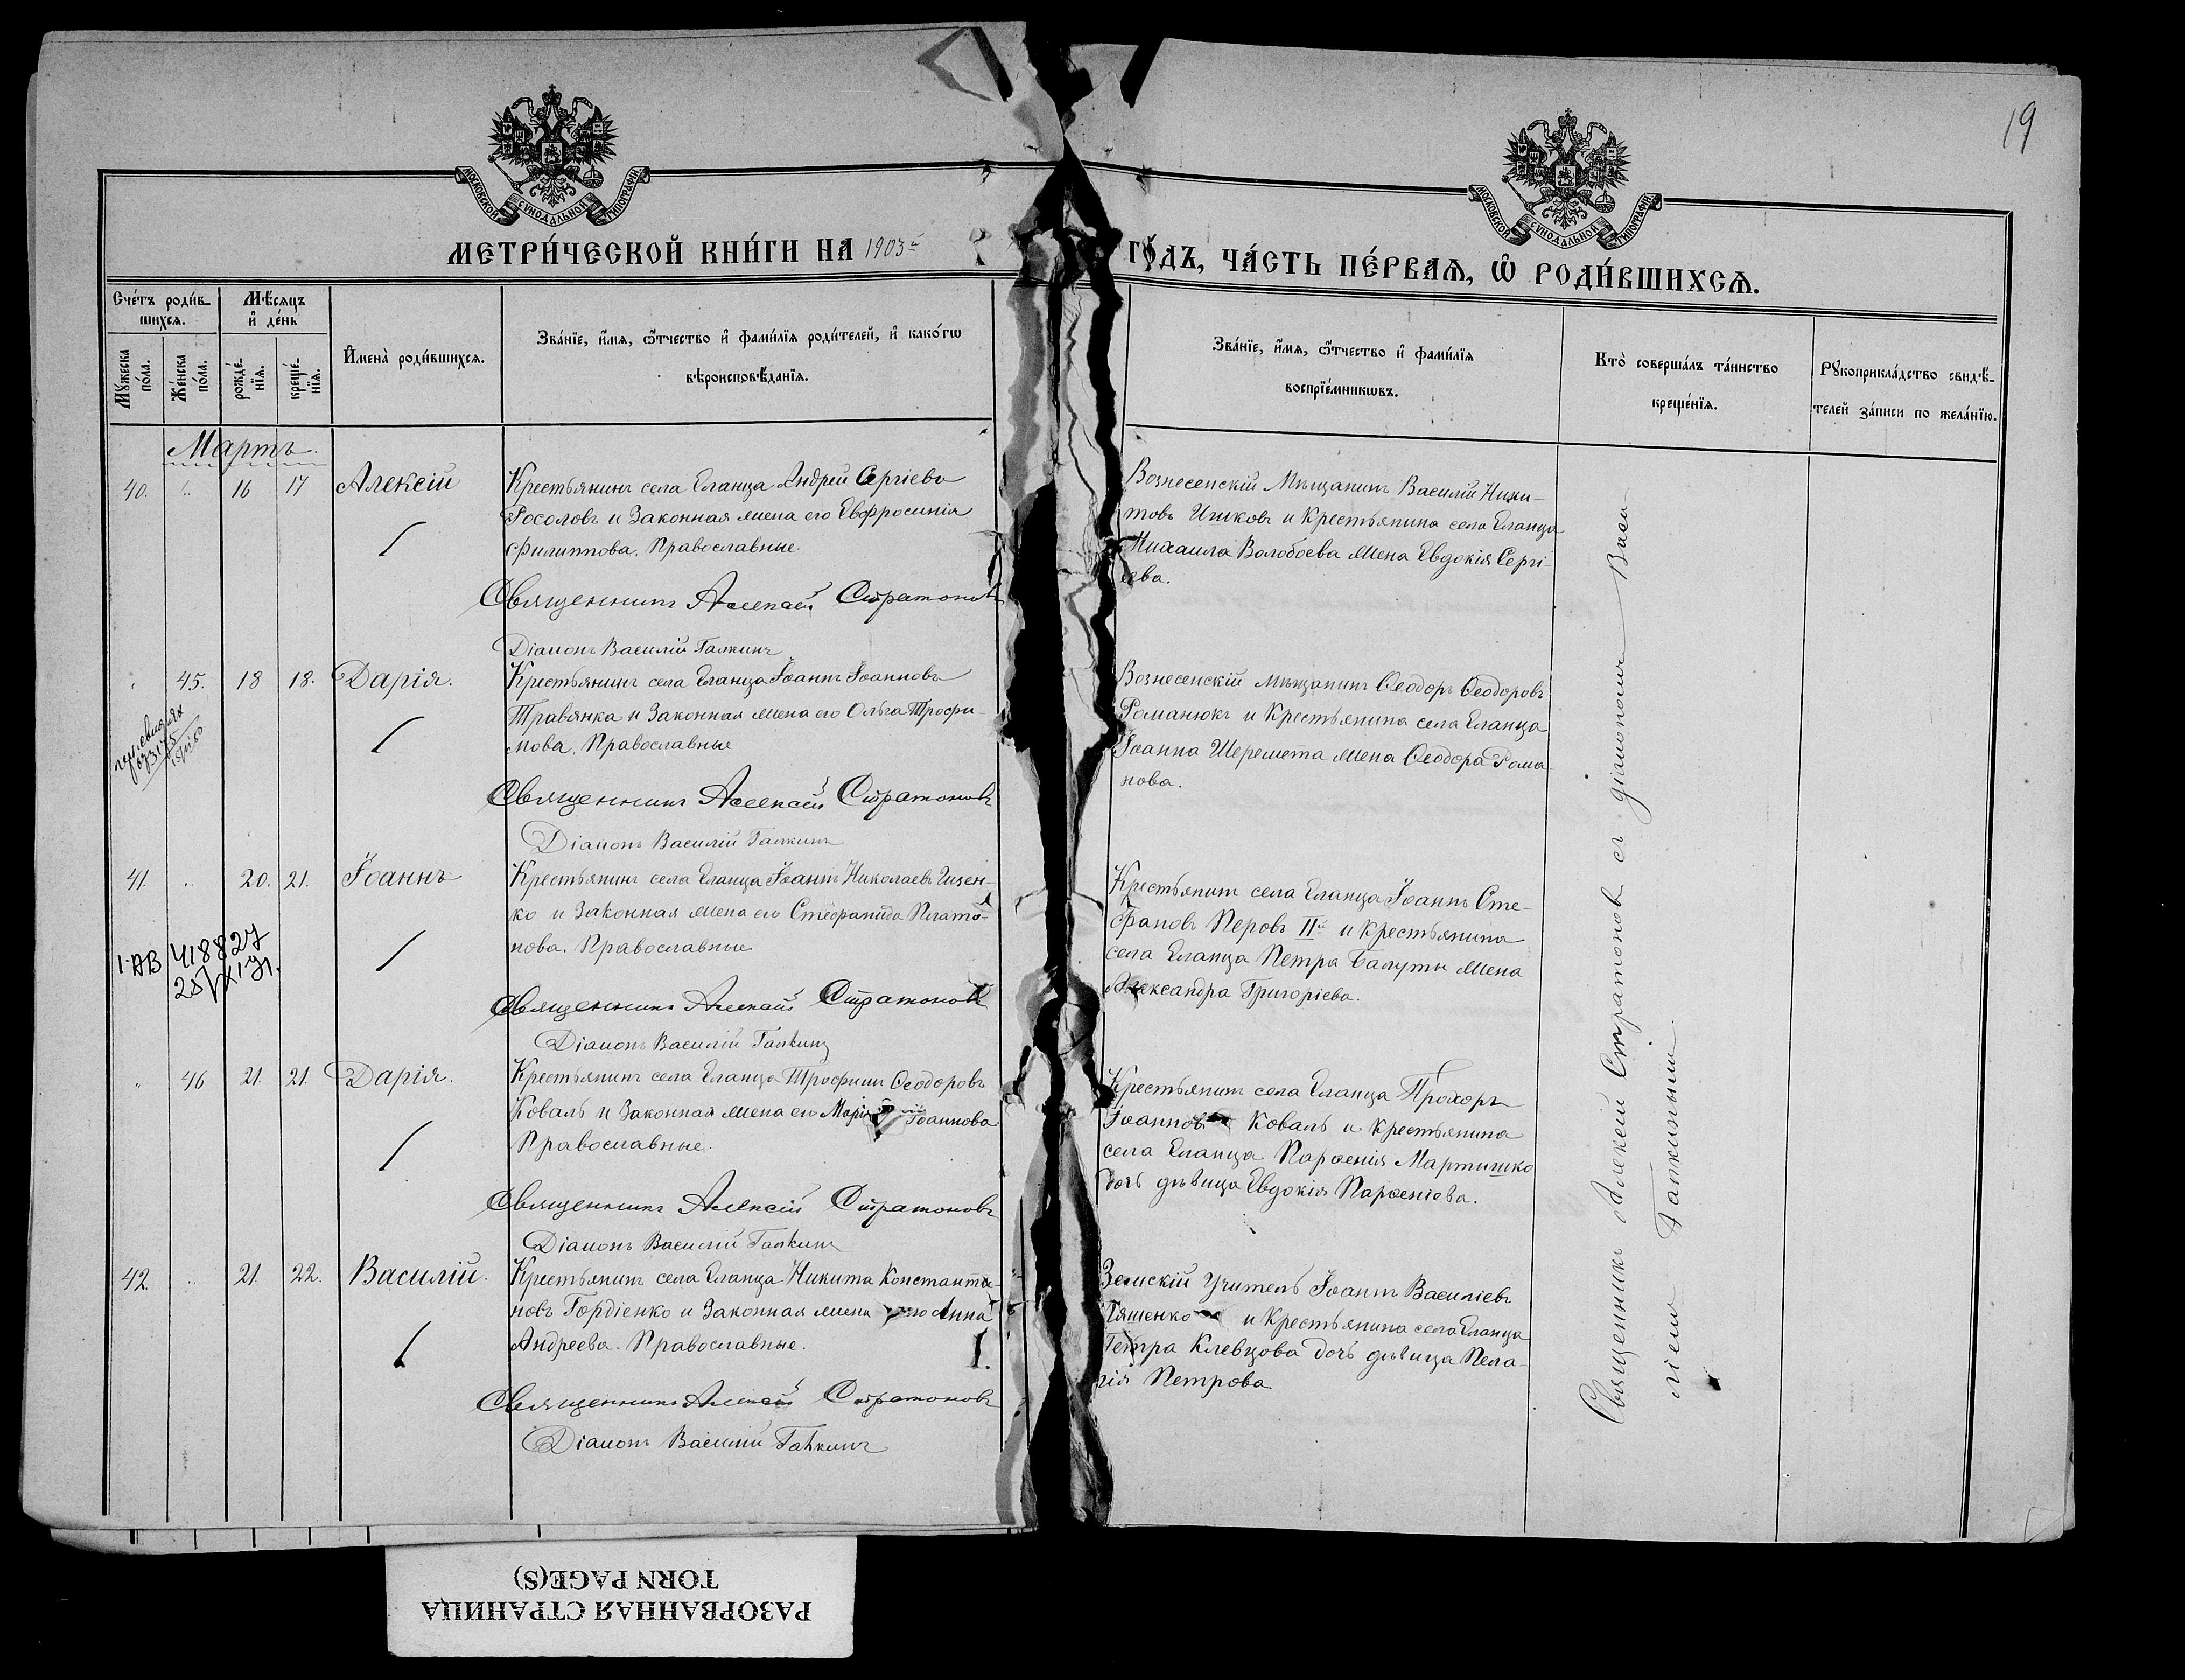 19
МОСКОВСКОЙ СѴНОДАЛЬНОЙ ТИПОГРАФІИ
МОСКОВСКОЙ СѴНОДАЛЬНОЙ ТИПОГРАФІИ
МЕТРИ́ЧЕСКОЙ КНИ́ГИ НА 1903й ГО́ДЪ, ЧА́СТЬ ПЕ́РВАѦ, Ѡ҆ РОДИ́ВШИХСѦ.
Сче́тъ роди́в-
шихсѧ.
Мѣ́сяцъ
и҆ де́нь
Мꙋ́жеска
по́ла.
Же́нска
по́ла.
рожде́-
нїѧ.
креще́-
нїѧ.
И҆мена̀ роди́вшихсѧ.
Зва́нїе, и҆́мѧ, ѻ҆́тчество и҆ фами́лїѧ роди́телей, и҆ како́гѡ
вѣроисповѣ́данїѧ.
Зва́нїе, и҆́мѧ, ѻ҆́тчество и҆ фами́лїѧ
воспрїе́мникѡвъ.
Кто̀ соверша́лъ та́инство
креще́нїѧ.
Рꙋкоприкла́дство свидѣ́-
телей за́писи по жела́нїю.
Мартъ.
40. " 16 17 Алексій
Крестьянинъ села Еланца Андрей Сергіевъ
Росоловъ и Законная жена его Евфросинія
Филиппова. Православные.
Священникъ Алексѣй Стратоновъ
Діаконъ Василій Галкинъ
Вознесенскій Мѣщанинъ Василій Ники-
товъ и Крестьянина села Еланца
Михаила Волобоева жена Евдокія Сергі-
ева.
" 45. 18 18. Дарія.
Крестьянинъ села Еланца Іоаннъ Іоанновъ
Травянка и Законная жена его Ольга Трофи-
мова, Православные
Священникъ Алексѣй Стратоновъ
Діаконъ Василій Галкинъ
Вознесенскій мѣщанинъ Ѳеодоръ Ѳеодоровъ
Романюкъ и Крестьянина села Еланца
Іоанна Шеремета жена Ѳеодора Рома-
нова.
41. " 20. 21. Іоаннъ
Крестьянинъ села Еланца Іоаннъ Николаевъ
ко и Законная жена его Стефанида Плато-
нова. Православные
Священникъ Алексѣй Стратоновъ
Діаконъ Василій Галкинъ
Крестьянинъ села Еланца Іоаннъ Сте-
фановъ Перовъ IIй и крестьянина
села Еланца Петра Балуты жена
Александра Григоріева.
I-АВ 418827
25/XI-71.
" 46 21. 21. Дарія.
Крестьянинъ села Еланца Трофимъ Ѳеодоровъ
Коваль и Законная жена его Марія Іоаннова
Православные.
Священникъ Алексѣй Стратоновъ
Діаконъ Василій Галкинъ
Крестьянинъ села Еланца Прохоръ
Іоанновъ Коваль и крестьянина
села Еланца Парѳенія Мартишко
дочь дѣвица Евдокія Парѳеніова.
42. " 21. 22. Василій.
Крестьянинъ села Еланца Никита Константи-
новъ Гордіенко и Законная жена его Анна
Андреева. Православные.
Священникъ Алексѣй Стратоновъ
Діаконъ Василій Галкинъ
Земскій Учитель Іоаннъ Василіевъ
и Крестьянина села Еланца
Петра Клевцова дочь дѣвица Пела-
гія Петрова
Священникъ Алексій Стратоновъ съ діакономъ Васи-
ліемъ Галкинымъ.
РАЗОРВАННАЯ СТРАНИЦА
TORN PAGE(S)